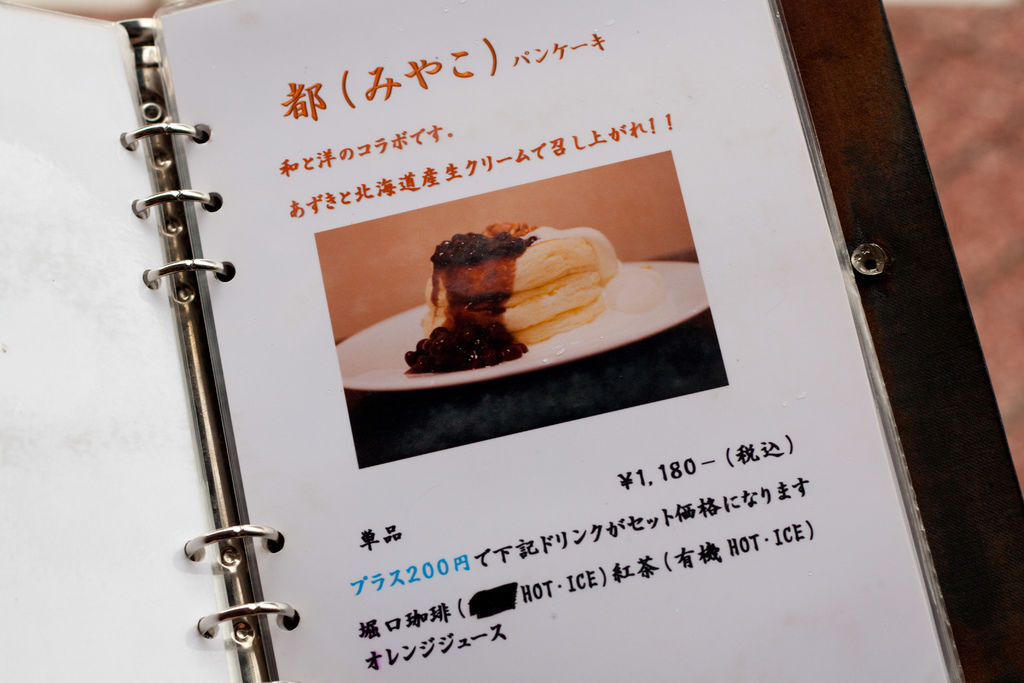 都(みやこ)パンケーキ
和と洋のコラボです。
あずきと北海道産生クリームで召し上がれ!!
単品 ¥1,180-(税込)
プラス200円で下記ドリンクがセット価格になります
堀口珈琲( HOT·ICE)紅茶(有機 HOT·ICE)
オレンジジュース